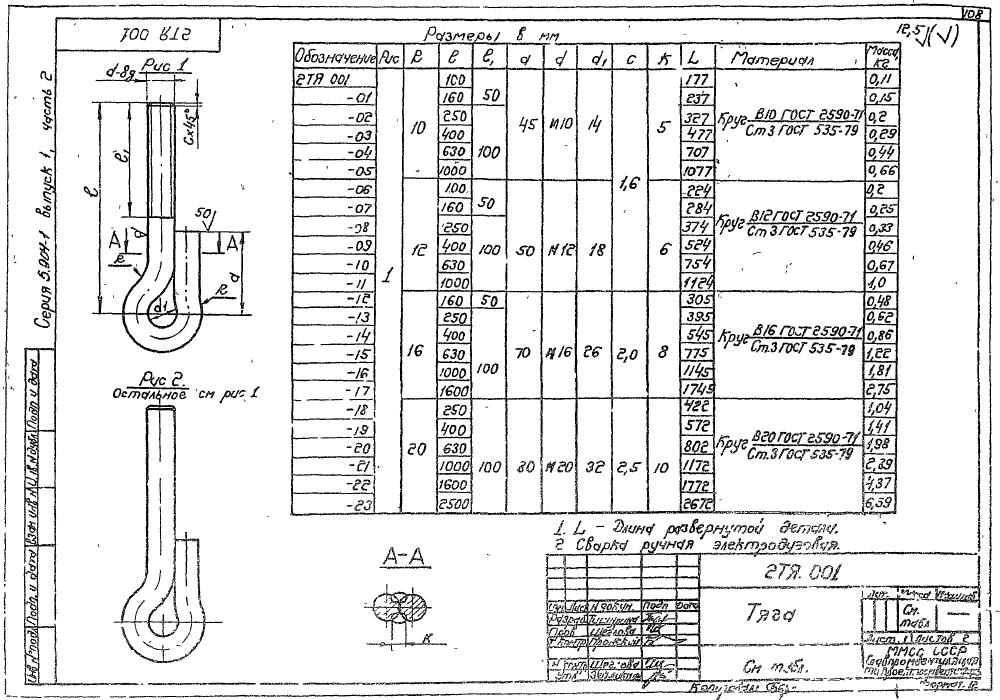 108
2ТЯ 001
Размеры в мм
12,5 (√)
Серия 5.904-1 выпуск 1, часть 2
Рис 1
d-8g
c×45°
l₁
l
50
А А
d
R
d1
R
a
Рис 2.
Остальное см рис 1
А-А
К
Обозначение Рис В l l₁ a d d₁ c к L Материал Масса, кг
2ТЯ 001 1 10 100 50 45 М10 14 1,6 5 177 Круг В10 ГОСТ 2590-71 / Ст 3 ГОСТ 535-79 0,11
-01 160 237 0,15
-02 250 100 327 0,2
-03 400 477 0,29
-04 630 707 0,44
-05 1000 1077 0,66
-06 12 100 50 50 М12 18 6 224 Круг В12 ГОСТ 2590-71 / Ст 3 ГОСТ 535-79 0,2
-07 160 284 0,25
-08 250 100 374 0,33
-09 400 524 0,46
-10 630 754 0,67
-11 1000 1124 1,0
-12 16 160 50 70 М16 26 2,0 8 305 Круг В16 ГОСТ 2590-71 / Ст.3 ГОСТ 535-79 0,48
-13 250 100 395 0,62
-14 400 545 0,86
-15 630 775 1,22
-16 1000 1145 1,81
-17 1600 1745 2,75
-18 20 250 100 80 М20 32 2,5 10 422 Круг В20 ГОСТ 2590-71 / Ст.3 ГОСТ 535-79 1,04
-19 400 572 1,41
-20 630 802 1,98
-21 1000 1172
-22 1600 1772 4,37
-23 2500 2672 6,59
1. L – Длина развернутой детали.
2 Сварка ручная электродуговая.
2ТЯ. 001
Тяга
См табл.
Изм Лист N докум. Подп Дата
Разраб
Пров
Н контр
Утв
Лит. Масса Масштаб
См. табл —
Лист 1 Листов 2
ММСС СССР
Копировал
Формат 12
Инв N подл Подп. и дата Взам инв N Инв. N дубл. Подп и дата